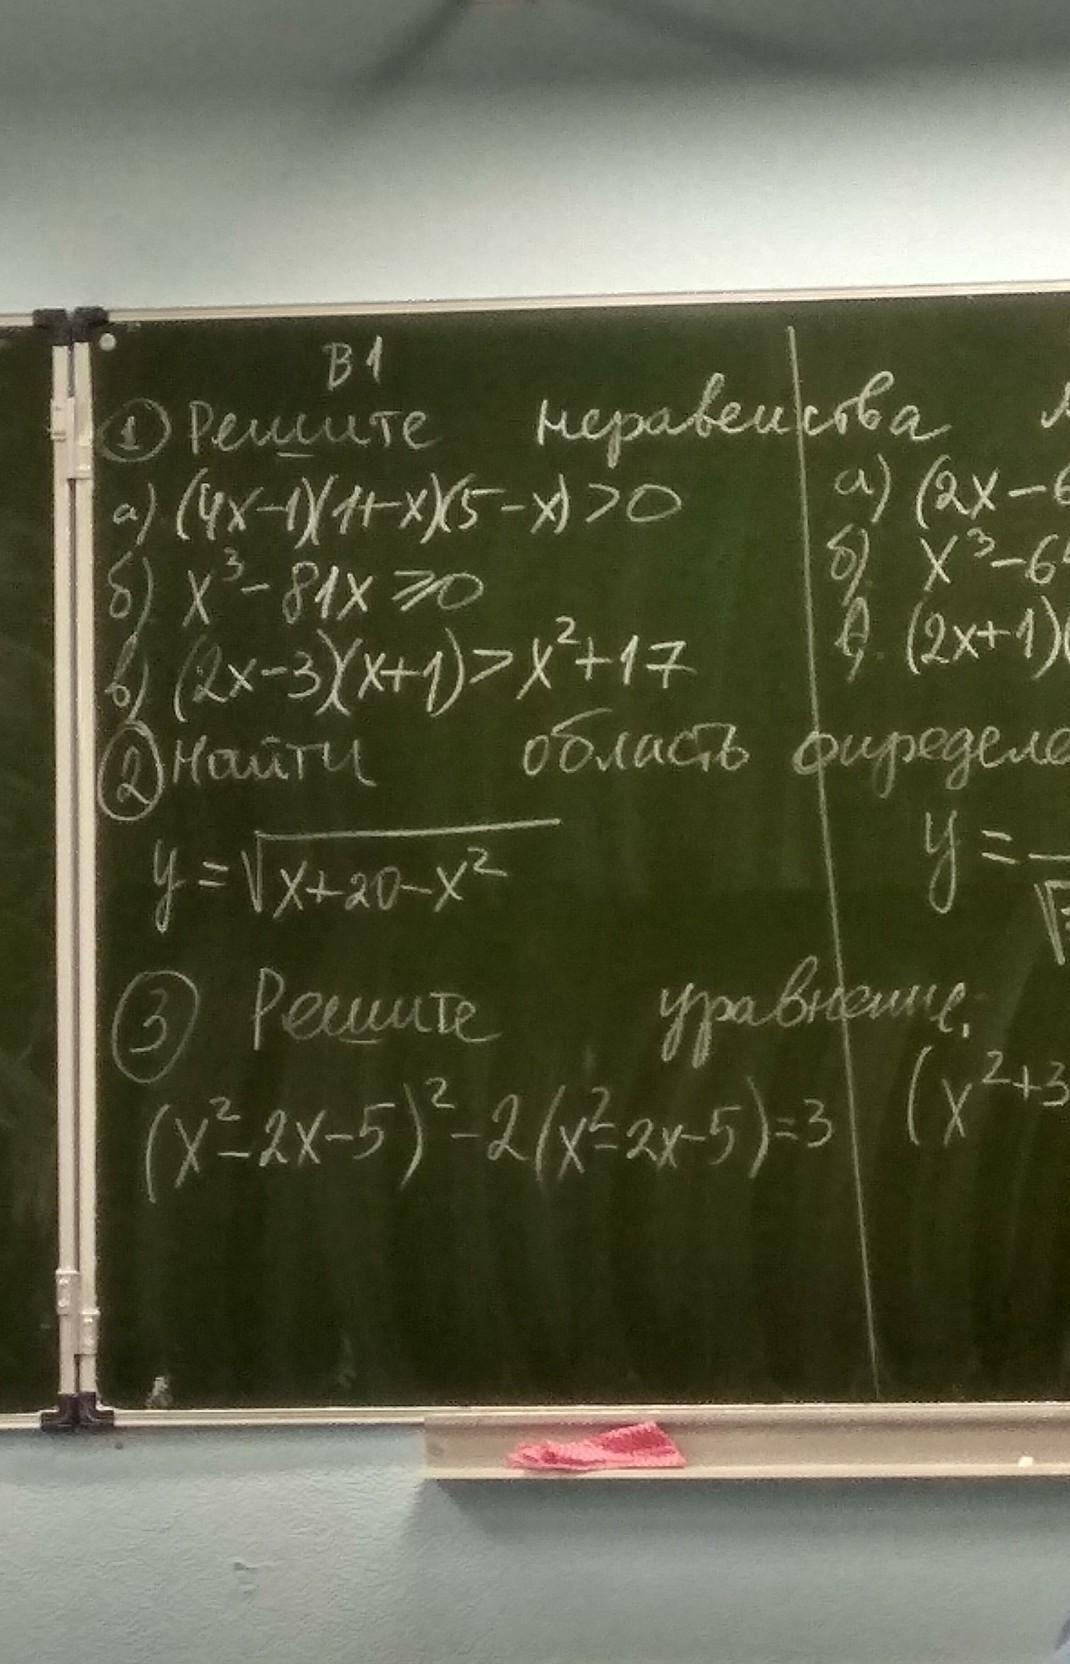 В1
① Решите неравенства
а) (4x-1)(1+x)(5-x)>0
б) x³-81x⩾0
в) (2x-3)(x+1)>x²+17
② Найти область определе
y=√x+20-x²
③ Решите уравнение.
(x²-2x-5)²-2(x²-2x-5)=3
а) (2x-6
б) x³-6
в) (2x+1)(
y=
√
(x²+3